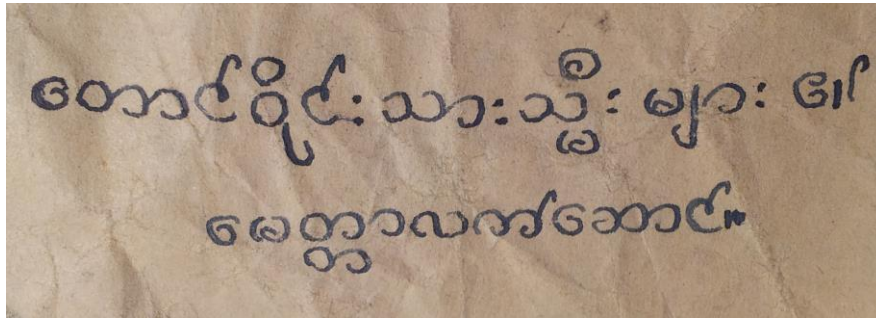 တောင်ဝိုင်းသားသ္မီးများ ၏
မေတ္တာလက်ဆောင်။